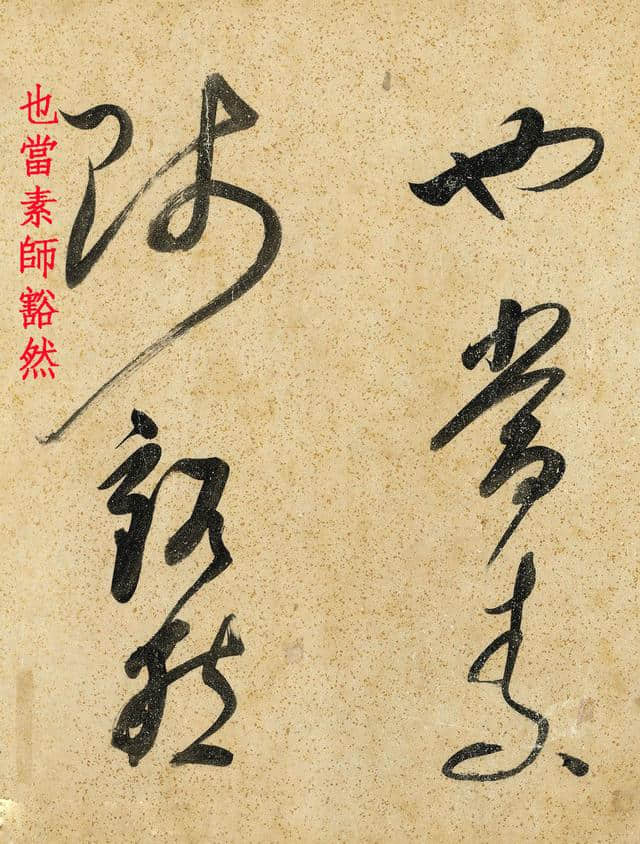 也當素
師豁然
也當素師豁然